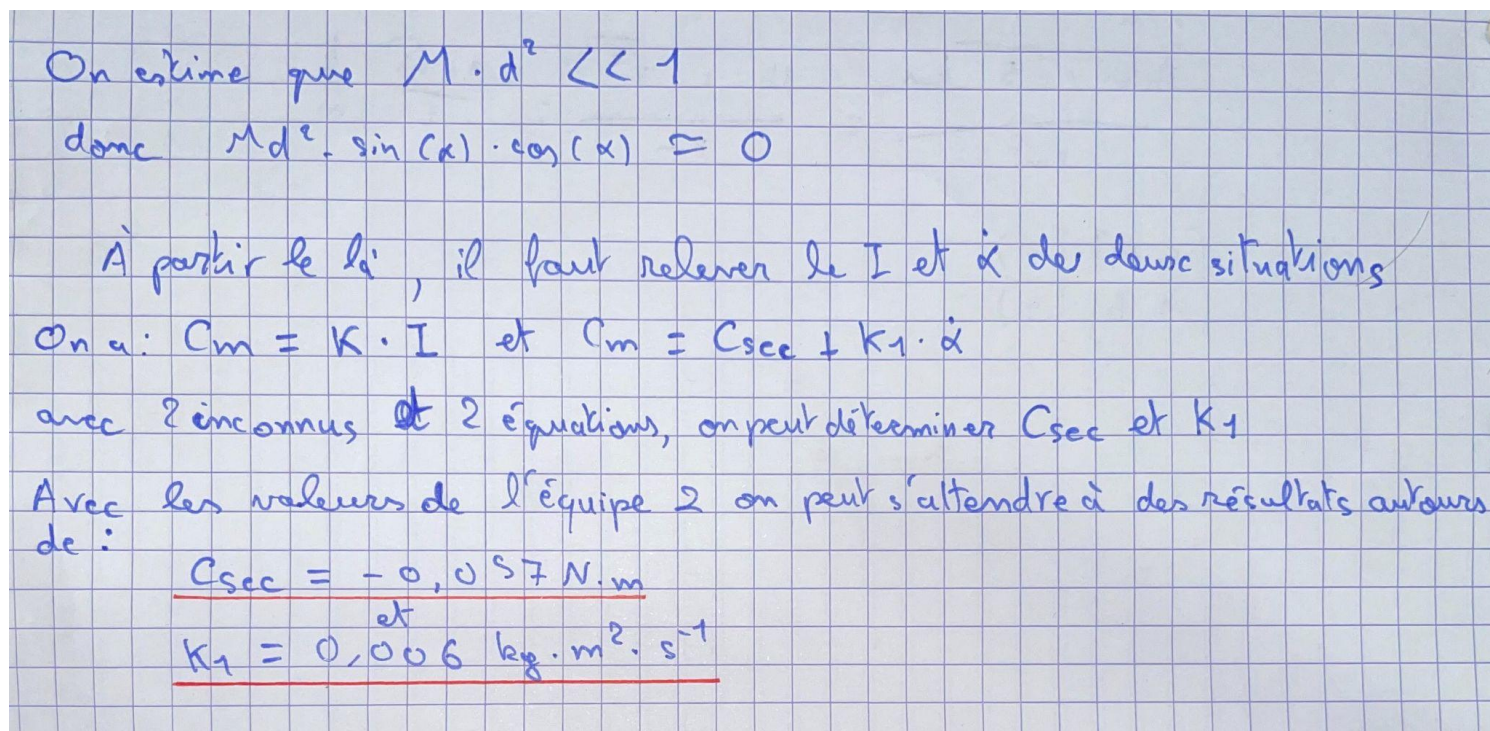 On estime que M.d² << 1
donc Md². sin(α).cos(α) = 0
À partir le là, il faut relever le I et α̇ des deux situations
On a: Cm = K.I et Cm = Csec + K1.α̇
avec 2 inconnus et 2 équations, on peut déterminer Csec et K1
Avec les valeurs de l'équipe 2 on peut s'attendre à des résultats autours
de :
Csec = -0,057 N.m
et
K1 = 0,006 kg.m².s⁻¹